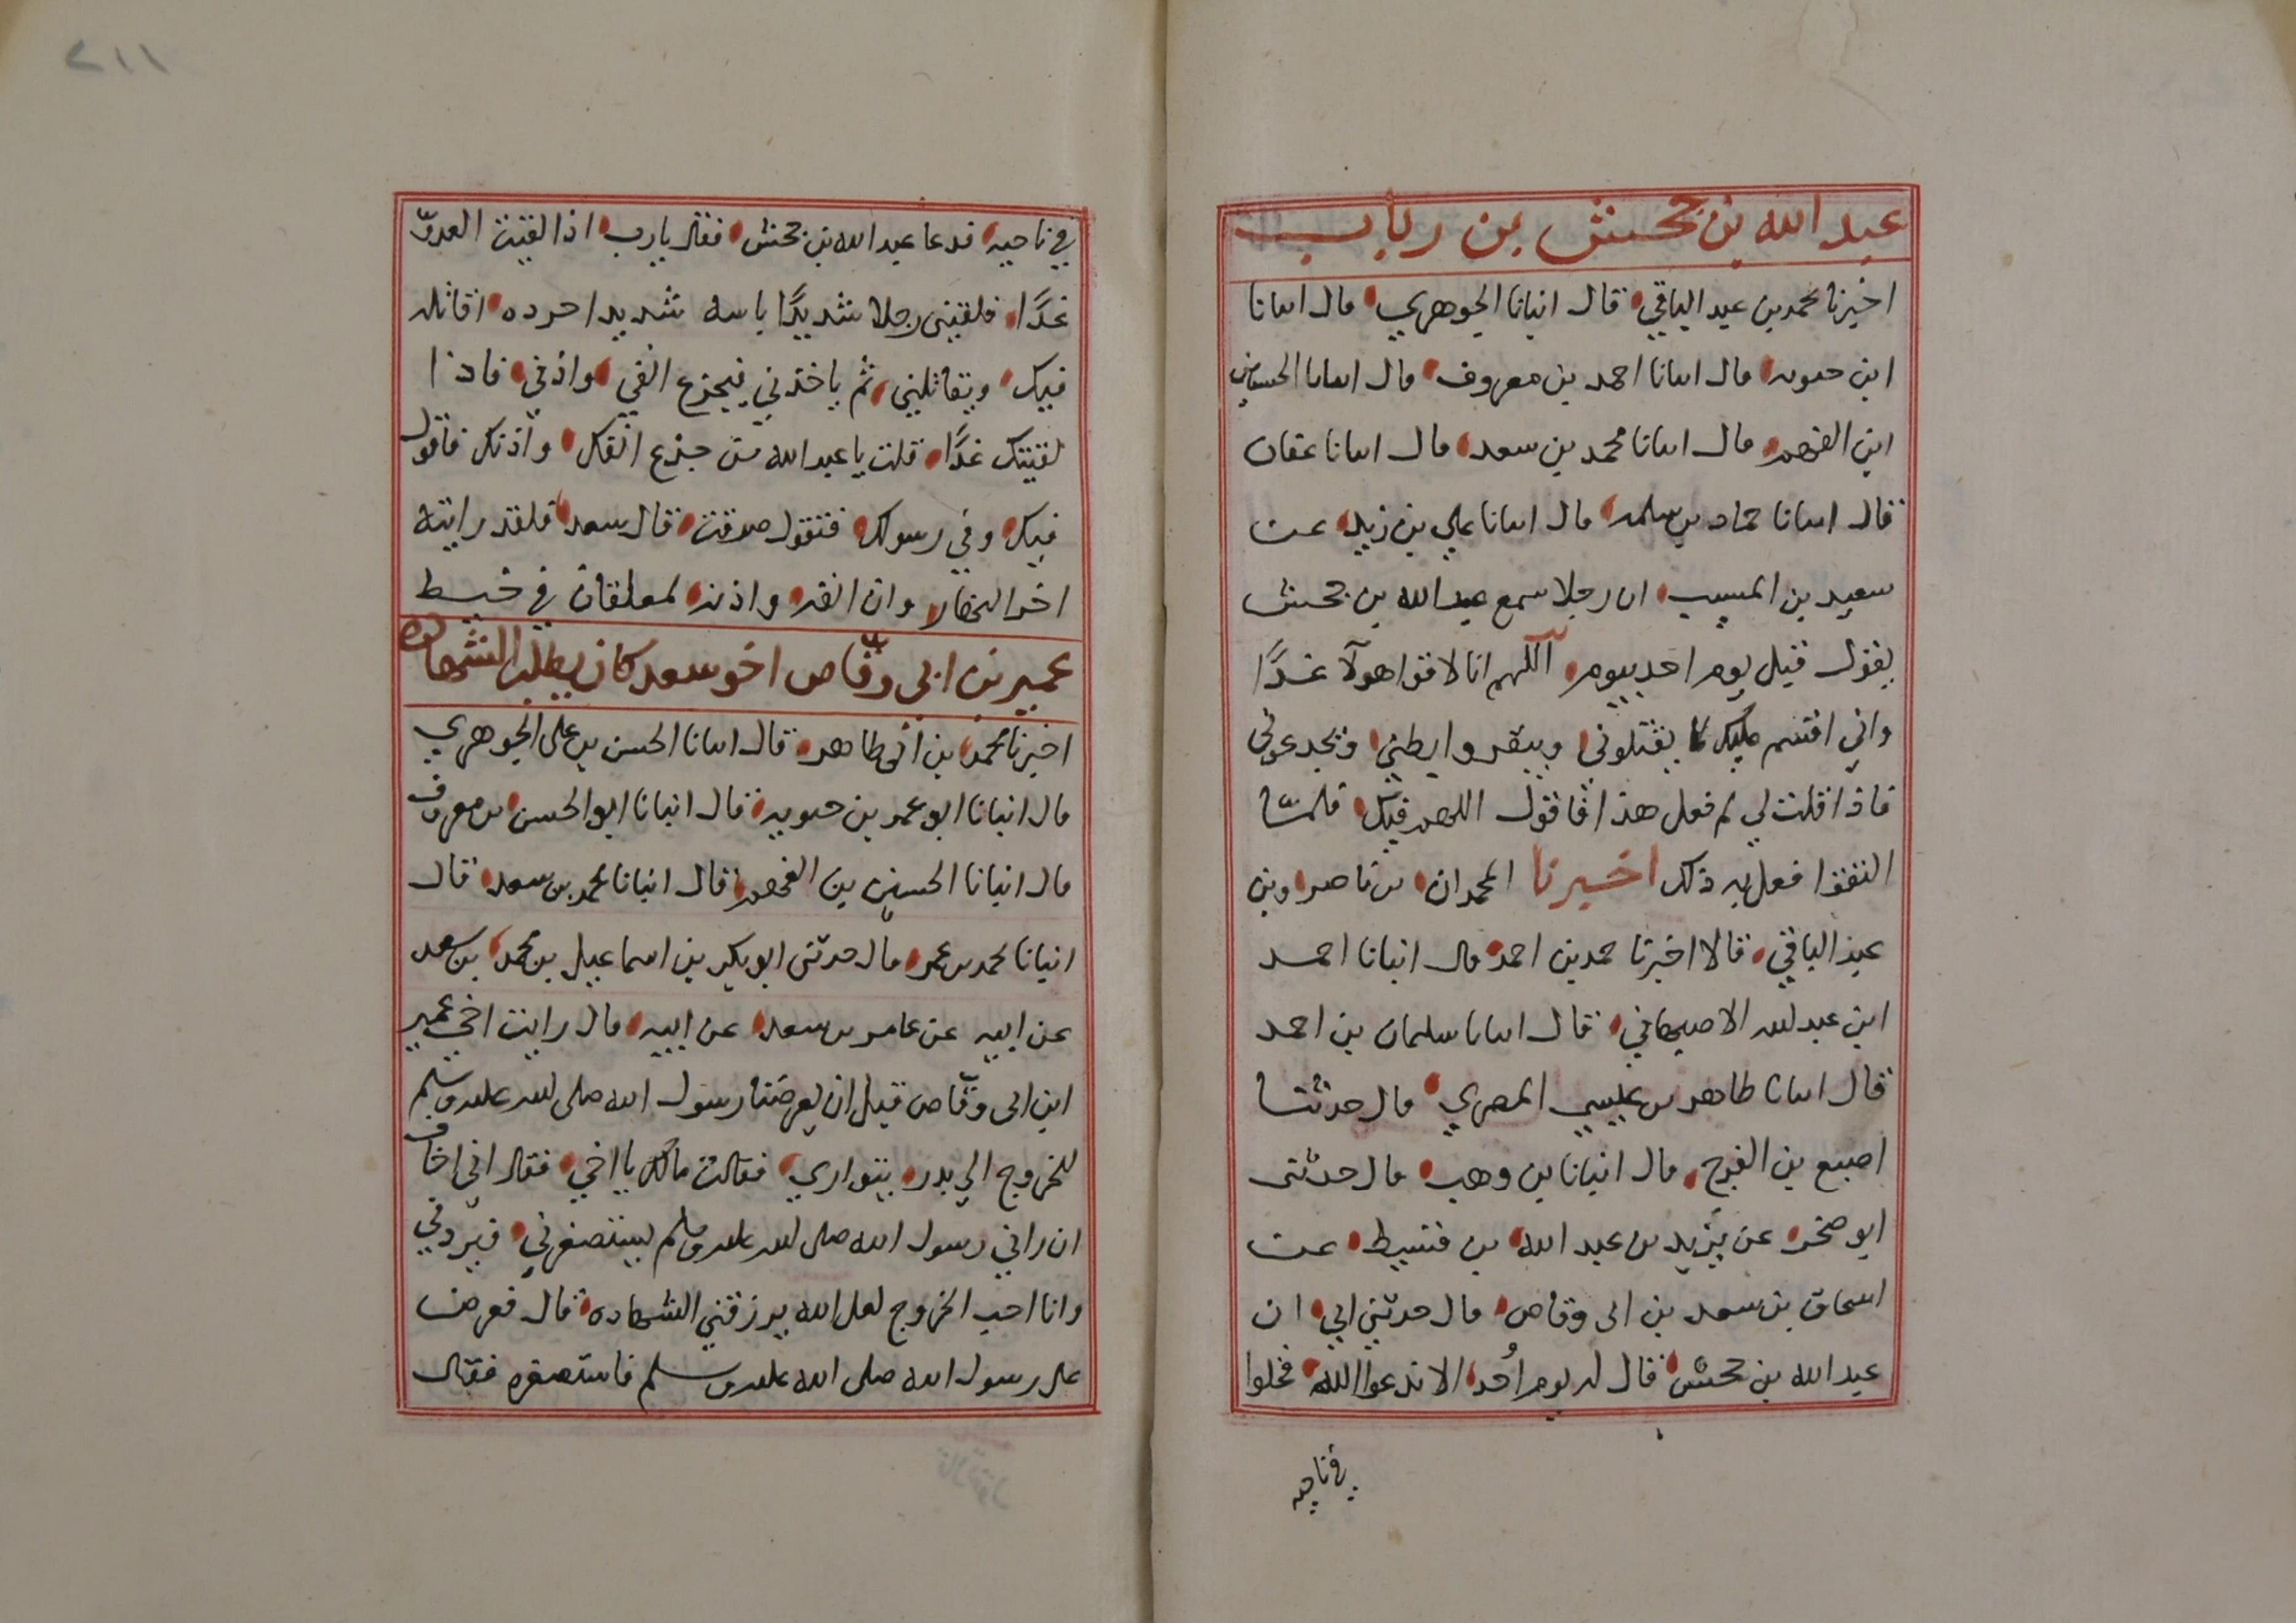 عبد الله بن جحش بن رباب
اخبرنا محمد بن عبد الباقي قال انبانا الجوهري قال انبانا
ابن حيويه قال انبانا احمد بن معروف قال انبانا الحسين
ابن الفهم قال انبانا محمد بن سعد قال انبانا عفان
قال انبانا حماد بن سلمه قال انبانا علي بن زيد عن
سعيد بن المسيب ان رجلا سمع عبد الله بن جحش
يقول قبل يوم احد بيوم اللهم انا لاقوا هولآ غدًا
واني اقسم عليك لما يقتلوني ويبقروا بطني ويجدعوني
فاذا قلت لي لم فعل هذا فاقول اللهم فيك فلما
التقوا فعل به ذلك اخبرنا المحمدان بن ناصر وبن
عبد الباقي قالا اخبرنا حمد بن احمد قال انبانا احمد
ابن عبد الله الاصبهاني قال انبانا سليمان بن احمد
قال انبانا طاهر بن عيسى المصري قال حدثنا
اصبع بن الفرج قال انبانا بن وهب قال حدثني
ابو صخر عن يزيد بن عبد الله بن قسيط عن
اسحاق بن سعد بن ابي وقاص قال حدثني ابي ان
عبد الله بن جحش قال له يوم اُحد الا ندعوا الله فخلوا
في ناحيه
٢١١
في ناحيه فدعا عبد الله بن جحش فقال يارب اذا لقيت العدوّ
غدًا فلقيني رجلا شديدًا باسه شديدا حرده اقاتله
فيك ويقاتلني ثم ياخذني فيجذع انفي واذني فاذا
لقيتك غدًا قلت يا عبد الله من جذع انفك واذنك فاقول
فيك وفي رسولك فتقول صدقت قال سعد فلقد رايته
اخر النهار وان انفه واذنه لمعلقان في خيط
عمير بن ابي وقّاص اخو سعد كان يطلب الشهاده
اخبرنا محمد بن ابي طاهر قال انبانا الحسن بن علي الجوهري
قال انبانا ابو عمر بن حيويه قال انبانا ابو الحسن بن معروف
قال انبانا الحسين بن الفهم قال انبانا محمد بن سعد قال
انبانا محمد بن عمر قال حدثني ابو بكر بن اسماعيل بن محمد بن سعد
عن ابيه عن عامر بن سعد عن ابيه قال رايت اخي عمير
ابن ابي وقّاص قبل ان يعرضنا رسول الله صلى الله عليه وسلم
للخروج الي بدر يتواري فقلت مالك يا اخي فقال اني اخاف
ان راني رسول الله صلى الله عليه وسلم يستصغرني فيردني
وانا احب الخروج لعل الله يرزقني الشهاده قال فعرض
على رسول الله صلى الله عليه وسلم فاستصغره فقال